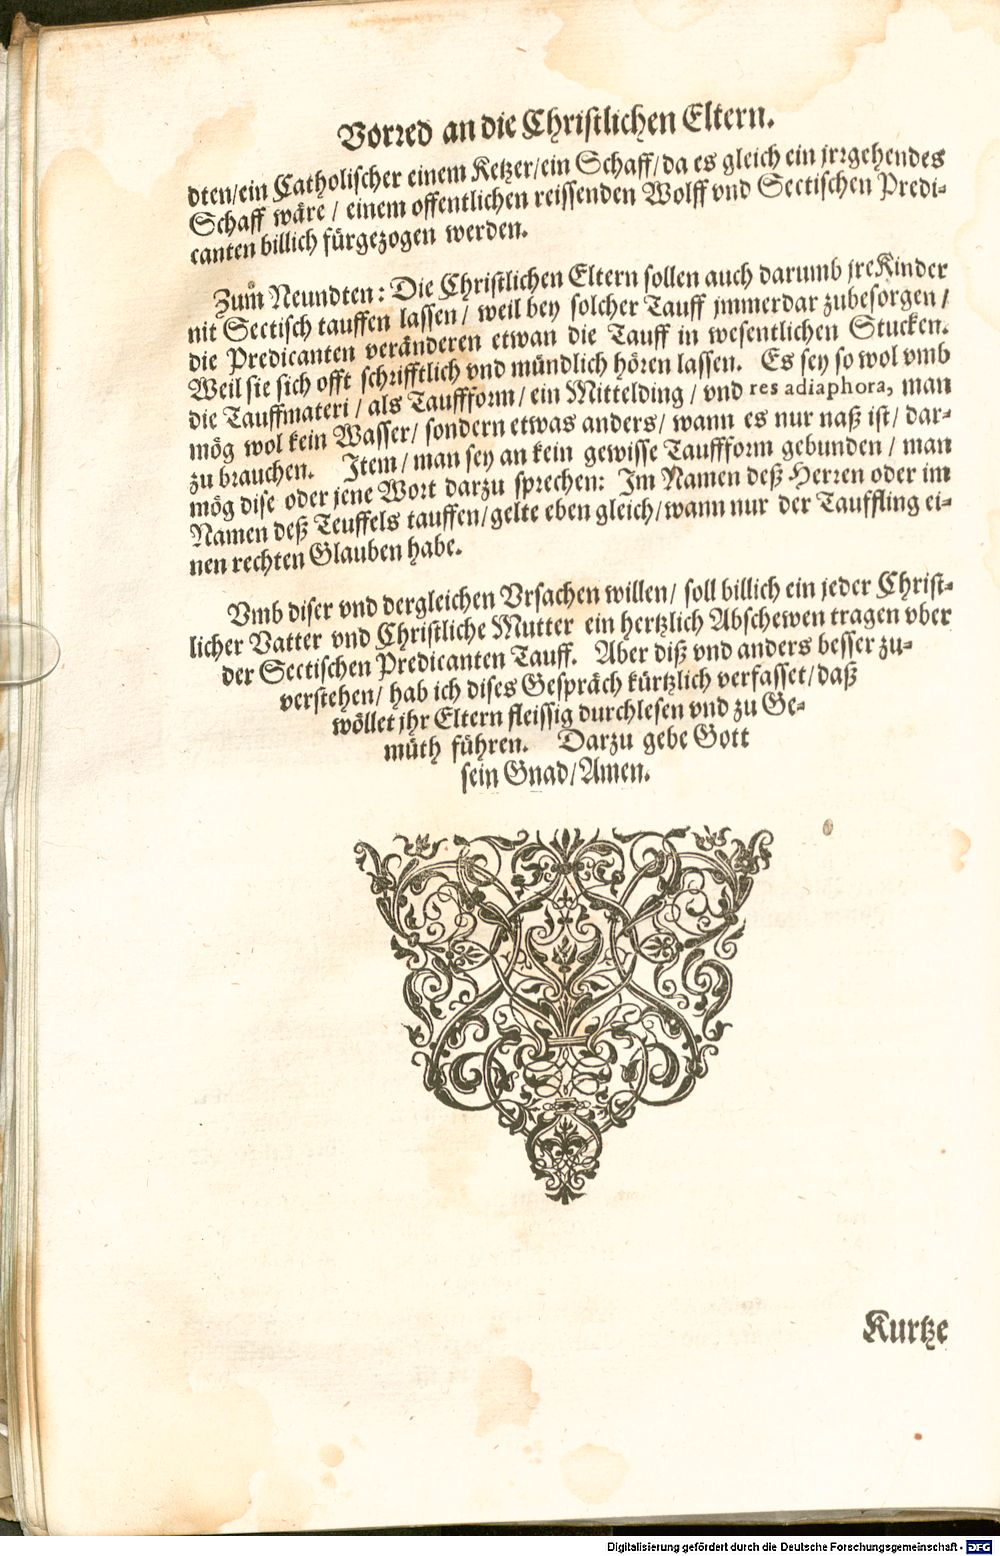 Vorred an die Christlichen Eltern.
dten/ein Catholischer einem Ketzer/ein Schaff/da es gleich ein jrrgehendes
Schaff wäre / einem offentlichen reissenden Wolff vnd Sectischen Predi-
canten billich fürgezogen werden.
Zům Neundten: Die Christlichen Eltern sollen auch darumb jre Kinder
nit Sectisch tauffen lassen / weil bey solcher Tauff jmmerdar zubesorgen /
die Predicanten veränderen etwan die Tauff in wesentlichen Stucken.
Weil sie sich offt schrifftlich vnd mündlich hören lassen. Es sey so wol vmb
die Tauffmateri / als Tauffform / ein Mittelding / vnd res adiaphora, man
mög wol kein Wasser / sondern etwas anders / wann es nur naß ist / dar-
zu brauchen. Item / man sey an kein gewisse Tauffform gebunden / man
mög dise oder jene Wort darzu sprechen: Im Namen deß Herren oder im
Namen deß Teuffels tauffen / gelte eben gleich / wann nur der Tauffling ei-
nen rechten Glauben habe.
Vmb diser vnd dergleichen Vrsachen willen / soll billich ein jeder Christ-
licher Vatter vnd Christliche Mutter ein hertzlich Abschewen tragen vber
der Sectischen Predicanten Tauff. Aber diß vnd anders besser zu-
verstehen / hab ich dises Gespräch kürtzlich verfasset / daß
wöllet jhr Eltern fleissig durchlesen vnd zu Ge-
müth führen. Darzu gebe Gott
sein Gnad / Amen.
Kurtze
Digitalisierung gefördert durch die Deutsche Forschungsgemeinschaft - DFG